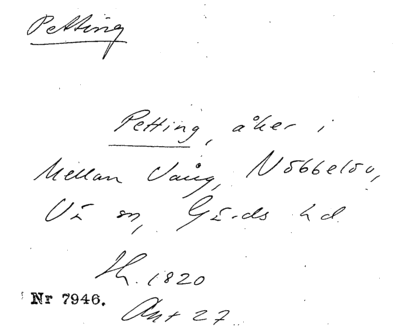 Petting
Petting, åker i
Mellan Vång, Nöbbelöv,
Vä sn, Gärds hd
Sk. 1820
Nr 7946.
Akt 27